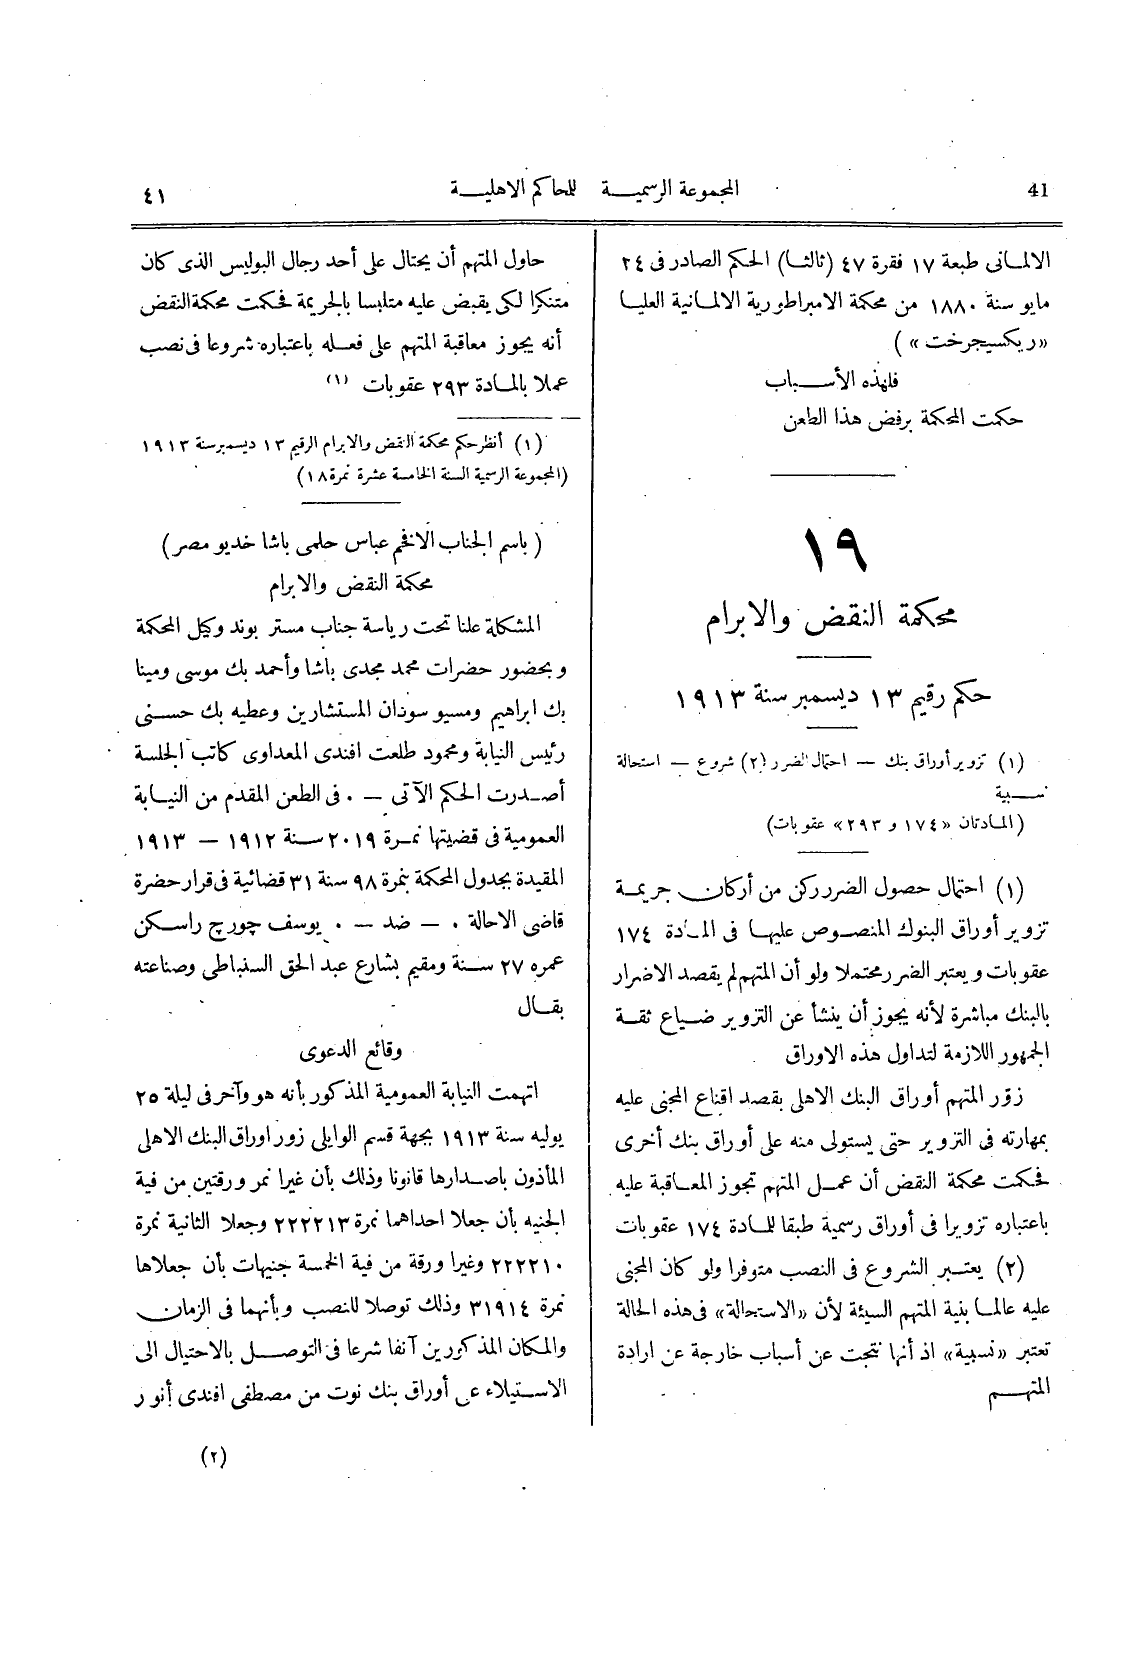 41 المجموعة الرسمية للمحاكم الاهلية ٤١
الالمانى طبعة ١٧ فقرة ٤٧ (ثالثا) الحكم الصادر فى ٢٤
مايو سنة ١٨٨٠ من محكمة الامبراطورية الالمانية العليا
«ريكسيجرخت»)
فلهذه الأسباب
حكمت المحكمة برفض هذا الطعن
١٩
محكمة النقض والابرام
حكم رقيم ١٣ ديسمبر سنة ١٩١٣
(١) تزوير أوراق بنك — احتمال الضرر (٢) شروع — استحالة
نسبية
(المادتان «١٧٤ و ٢٩٣» عقوبات)
(١) احتمال حصول الضرر ركن من أركان جريمة
تزوير أوراق البنوك المنصوص عليها فى المادة ١٧٤
عقوبات ويعتبر الضرر محتملا ولو أن المتهم لم يقصد الاضرار
بالبنك مباشرة لأنه يجوز أن ينشأ عن التزوير ضياع ثقة
الجمهور اللازمة لتداول هذه الاوراق
زوّر المتهم أوراق البنك الاهلى بقصد اقناع المجنى عليه
بمهارته فى التزوير حتى يستولى منه على أوراق بنك أخرى
فحكمت محكمة النقض أن عمل المتهم تجوز المعاقبة عليه
باعتباره تزويرا فى أوراق رسمية طبقا للمادة ١٧٤ عقوبات
(٢) يعتبر الشروع فى النصب متوفرا ولو كان المجنى
عليه عالما بنية المتهم السيئة لأن «الاستحالة» فى هذه الحالة
تعتبر «نسبية» اذ أنها نتجت عن أسباب خارجة عن ارادة
المتهم
حاول المتهم أن يحتال على أحد رجال البوليس الذى كان
متنكرا لكى يقبض عليه متلبسا بالجريمة فحكمت محكمة النقض
أنه يجوز معاقبة المتهم على فعله باعتباره شروعا فى نصب
عملا بالمادة ٢٩٣ عقوبات (١)
(١) أنظر حكم محكمة النقض والابرام الرقيم ١٣ ديسمبر سنة ١٩١٣
(المجموعة الرسمية السنة الخامسة عشرة نمرة ١٨)
(باسم الجناب الافخم عباس حلمى باشا خديو مصر)
محكمة النقض والابرام
المشكلة علنا تحت رياسة جناب مستر بوند وكيل المحكمة
وبحضور حضرات محمد مجدى باشا وأحمد بك موسى ومينا
بك ابراهيم ومسيو سودان المستشارين وعطيه بك حسنى
رئيس النيابة ومحمود طلعت افندى المعداوى كاتب الجلسة
أصدرت الحكم الآتى — ٠ فى الطعن المقدم من النيابة
العمومية فى قضيتها نمرة ٢٠١٩ سنة ١٩١٢ — ١٩١٣
المقيدة بجدول المحكمة بنمرة ٩٨ سنة ٣١ قضائية فى قرار حضرة
قاضى الاحالة ٠ — ضد — ٠ يوسف چورچ راسكن
عمره ٢٧ سنة ومقيم بشارع عبد الحق السنباطى وصناعته
بقال
وقائع الدعوى
اتهمت النيابة العمومية المذكور بأنه هو وآخر فى ليلة ٢٥
يوليه سنة ١٩١٣ بجهة قسم الوايلى زور اوراق البنك الاهلى
المأذون باصدارها قانونا وذلك بأن غيرا نمر ورقتين من فية
الجنيه بأن جعلا احداهما نمرة ٢٢٢٢١٣ وجعلا الثانية نمرة
٢٢٢٢١٠ وغيرا ورقة من فية الخمسة جنيهات بأن جعلاها
نمرة ٣١٩١٤ وذلك توصلا للنصب وبأنهما فى الزمان
والمكان المذكورين آنفا شرعا فى التوصل بالاحتيال الى
الاستيلاء على أوراق بنك نوت من مصطفى افندى أنور
(٢)